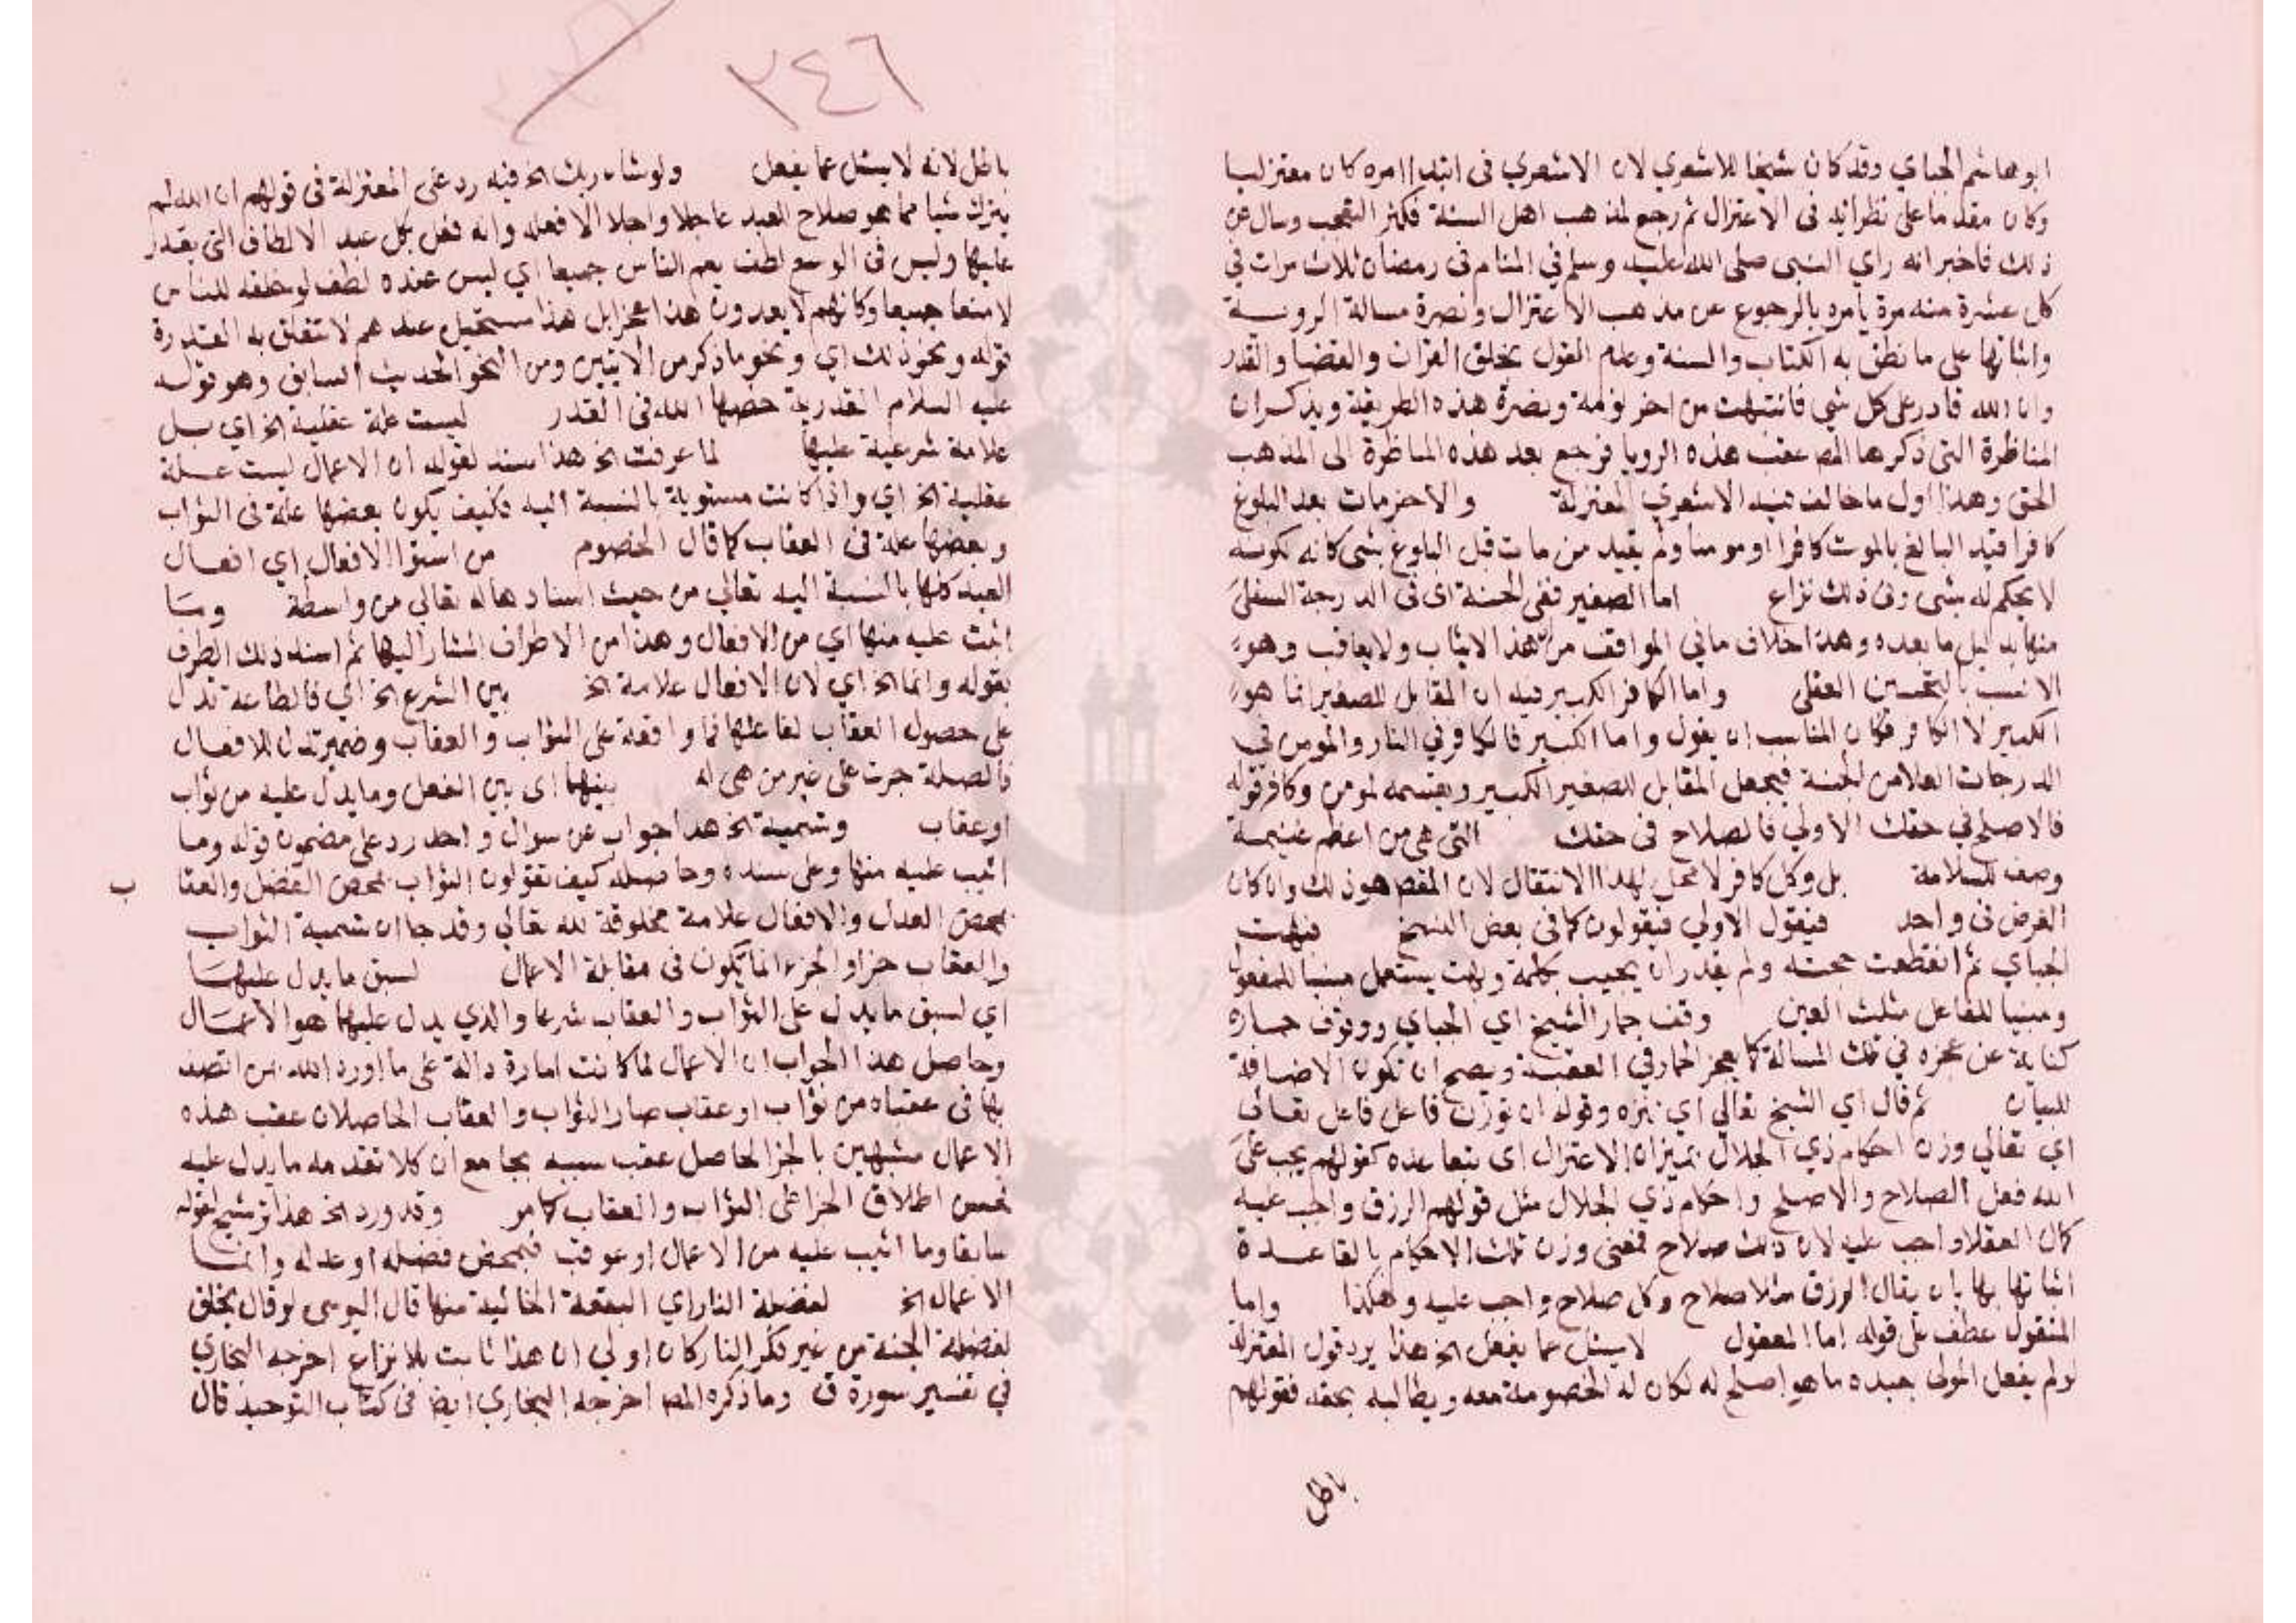 ابو هاشم الجباي وقد كان شيخا للاشعري لان الاشعري في ابتدا امره كان معتزليا
وكان مقدما على نظرائه في الاعتزال ثم رجع لمذهب اهل السنة فكثر التعجب وسال عن
ذلك فاخبر انه راي النبي صلى الله عليه وسلم في المنام في رمضان ثلاث مرات في
كل عشرة منه مرة يامره بالرجوع عن مذهب الاعتزال ونصرة مسالة الروية
واثباتها على ما نطق به الكتاب والسنة وعدم القول بخلق القران والقضا والقدر
وان الله قادر على كل شي فانتبهت من اخر نومة ونصرة هذه الطريقة ويذكر ان
المناظرة التي ذكرها المص عقب هذه الرويا فرجع بعد هذه المناظرة الى المذهب
الحق وهذا اول ما خالف فيه الاشعري المعتزلة والاخر مات بعد البلوغ
كافرا قيد البالغ بالموت كافرا او مومنا ولم يقيد من مات قبل البلوغ بشي كانه لكونه
لا يحكم له بشي وفي ذلك نزاع اما الصغير ففي الجنة اى في الدرجة السفلى
منها بدليل ما بعده وهذا خلاف ما في المواقف من ان هذا لا يثاب ولا يعاقب وهو
الانسب بالتحسين العقلي واما الكافر الكبير فيه ان المقابل للصغير انما هو
الكبير لا الكافر فكان المناسب ان يقول واما الكبير فالكافر في النار والمومن في
الدرجات العلا من الجنة فيجعل المقابل للصغير الكبير ويقسمه لمومن وكافر قوله
فالاصلح في حقك الاولي فالصلاح في حقك التي هي من اعظم غنيمة
وصف للسلامة بل وكل كافر لا محل لهذا الانتقال لان المقصم هو ذلك وان كان
الفرض في واحد فيقول الاولي فيقولون كما في بعض النسخ فبهت
الجباي ثم انقطعت حجته ولم يقدر ان يجيب بكلمة وبهت يستعمل مبنيا للمفعول
ومبنيا للفاعل مثلث العين وقف حمار الشيخ اي الجباي ووقوف حماره
كناية عن عجزه في تلك المسالة كما يعجز الحمار في العقبة ويصح ان تكون الاضافة
للبيان ثم قال اي الشيخ تعالي اي تنزه وقوله ان توزن فاعل فاعل تعالى
اي تعالي وزن احكام ذي الجلال بميزان الاعتزال اى بقاعده كقولهم يجب على
الله فعل الصلاح والاصلح واحكام ذي الجلال مثل قولهم الرزق واجب عليه
كمال العقل واجب عليه لان ذلك صلاح فمعنى وزن تلك الاحكام بالقاعدة
اثباتها بها بان يقال الرزق مثلا صلاح وكل صلاح واجب عليه وهكذا واما
المنقول عطف على قوله اما المعقول لا يسئل عما يفعل الخ هذا يرد قول المعتزلة
لو لم يفعل المولى بعبده ما هو اصلح له لكان له الخصومة معه ويطالبه بحقه فقولهم
باطل
٣٤٦
باطل لانه لا يسئل عما يفعل ولو شاء ربك الخ فيه رد على المعتزلة في قولهم ان الله لم
يترك شيا مما هو صلاح العبد عاجلا واجلا الا فعله وانه فعل بكل عبد الالطاف التي يقدر
عليها وليس في الوسع لطف يعم الناس جميعا اي ليس عنده لطف لو خلقه للناس
لامنوا جميعا وكانهم لا يعدون هذا عجزا بل هذا مستحيل عندهم لا تتعلق به القدرة
قوله ونحو ذلك اي ونحو ما ذكر من الايتين ومن النحو الحديث السابق وهو قوله
عليه السلام القدرية خصما الله في القدر ليست علة عقلية الخ اي بل
علامة شرعية عليها لما عرفت الخ هذا سند لقوله ان الاعمال ليست علة
عقلية الخ اي واذا كانت مستوية بالنسبة اليه فكيف يكون بعضها علة في الثواب
وبعضها علة في العقاب كما قال الخصوم من استوا الافعال اي افعال
العبد كلها بالنسبة اليه تعالي من حيث اسنادها له تعالي من واسطة وما
اثبت عليه منها اي من الافعال وهذا من الاطراف المشار اليها ثم اسند ذلك الطرف
بقوله وانما الخ اي لان الافعال علامة الخ بين الشرع الخ اي فالطاعة تدل
على حصول العقاب لفاعلها فما واقعة على الثواب والعقاب وضمير تدل للافعال
فالصلة جرت على غير من هي له بينهما اى بين الفعل وما يدل عليه من ثواب
او عقاب وتسمية الخ هذا جواب عن سوال واحد رد على مضمون قوله وما
اثيب عليه منها وعلى سنده وحاصله كيف تقولون الثواب بمحض الفضل والعقا ب
بمحض العدل والافعال علامة مخلوقة لله تعالي وقد جا ان تسمية الثواب
والعقاب جزا والجزء انما يكون في مقابلة الاعمال لسبق ما يدل عليهما
اي لسبق ما يدل على الثواب والعقاب شرعا والذي يدل عليهما هو الاعمال
وحاصل هذا الجواب ان الاعمال لما كانت امارة دالة على ما اورد الله من اتصف
بها في عقباه من ثواب او عقاب صار الثواب والعقاب الحاصلان عقب هذه
الاعمال مشبهين بالجزا الحاصل عقب سببه بجامع ان كلا تقدمه ما يدل عليه
فحسن اطلاق الجزا على الثواب والعقاب كما مر وقد ورد الخ هذا توشيح لقوله
سابقا وما اثيب عليه من الاعمال او عوقب فبمحض فضله او عدله وانما
الاعمال الخ لفضلة النار اي البقعة الخالية منها قال اليوسى لو قال يخلق
لفضلة الجنة من غير ذكر النار كان اولي ان هذا ثابت بلا نزاع اخرجه البخاري
في تفسير سورة ق وما ذكره المص اخرجه البخاري ايض في كتاب التوحيد قال